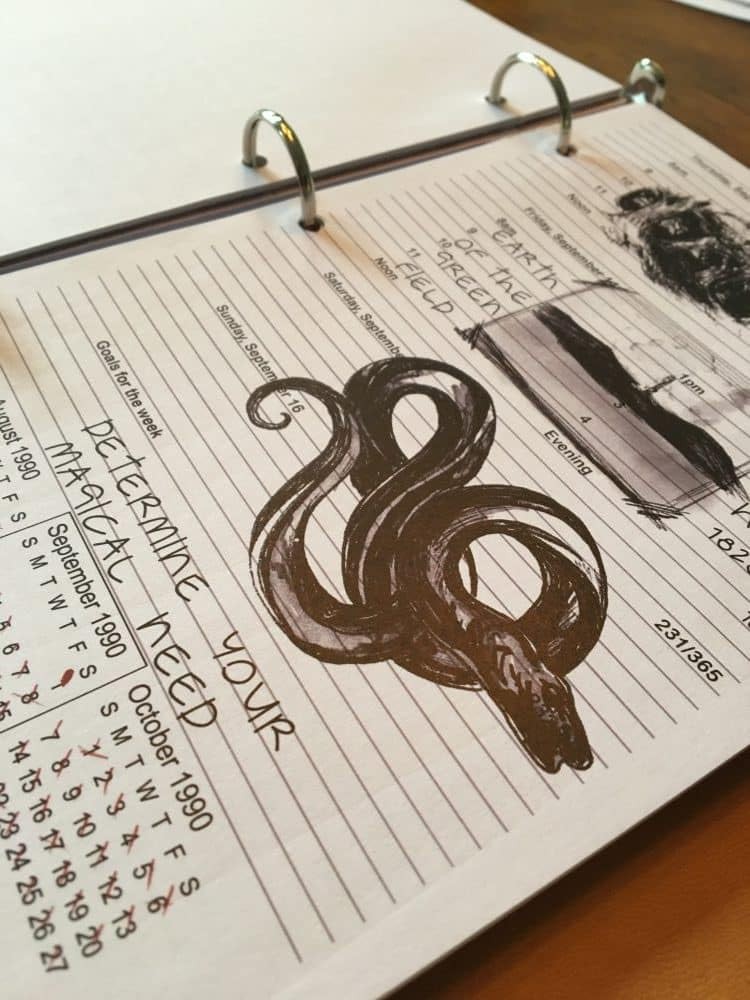 8am
Noon
11
Friday, September
8am EARTH
9 OF THE
10 GREEN
11 FIELD
Noon
1pm
3
4
Evening
Saturday, Septembe
Sunday, September 16
231/365
Goals for the week
DETERMINE YOUR
MAGICAL NEED
August 1990
T F S
September 1990
S M T W T F S
1
6 7 8
15
October 1990
S M T W T F S
1 2 3 4 5 6
7 8 9 10 11 12 13
14 15 16 17 18 19 20
23 24 25 26 27